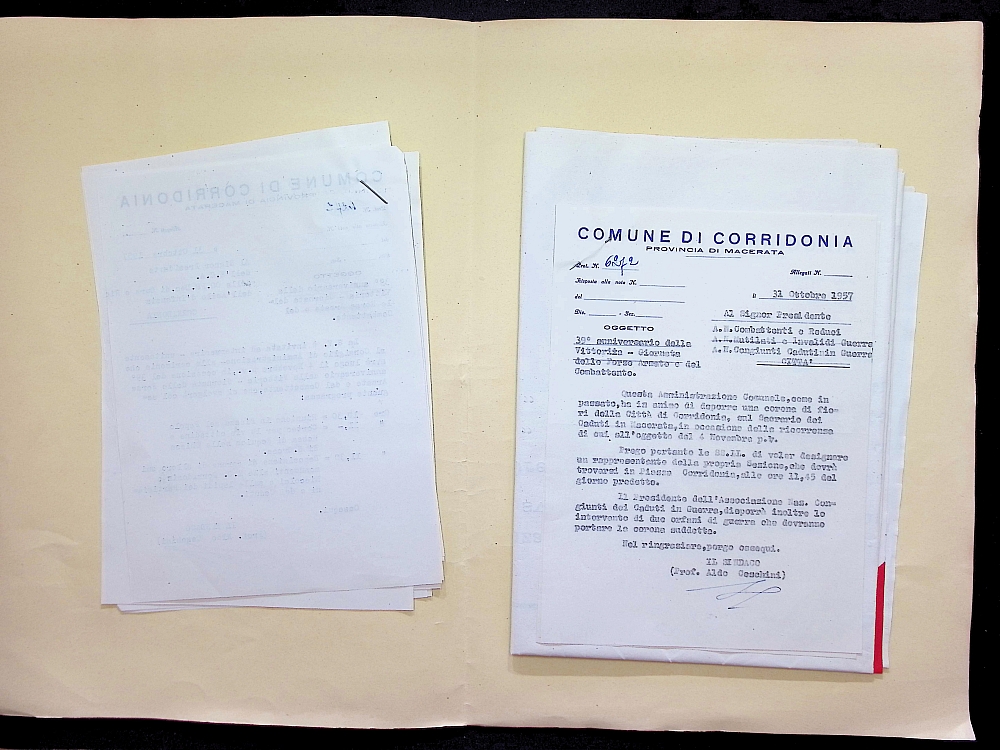 COMUNE DI CORRIDONIA
PROVINCIA DI MACERATA
Prot. N. 6272
Allegati N.
Risposta alla nota N.
del
lì 31 Ottobre 1957
Div. Sez.
Al Signor Presidente
OGGETTO
A.N.Combattenti e Reduci
A.N.Mutilati e Invalidi Guerra
A.N.Congiunti Caduti in Guerra
CITTA'
39° anniversario della
Vittoria - Giornata
delle Forze Armate e del
Combattente.
Questa Amministrazione Comunale,come in
passato,ha in animo di deporre una corona di fio-
ri della Città di Corridonia, sul Sacrario dei
Caduti in Macerata,in occasione della ricorrenza
di cui all'oggetto del 4 Novembre p.v.
Prego pertanto le SS.LL. di voler designare
un rappresentante della propria Sezione,che dovrà
trovarsi in Piazza Corridonia,alle ore 11,45 del
giorno predetto.
Il Presidente dell'Associazione Naz. Con-
giunti dei Caduti in Guerra,disporrà inoltre lo
intervento di due orfani di guerra che dovranno
portare la corona suddetta.
Nel ringraziare,porgo ossequi.
IL SINDACO
(Prof. Aldo Ceschini)